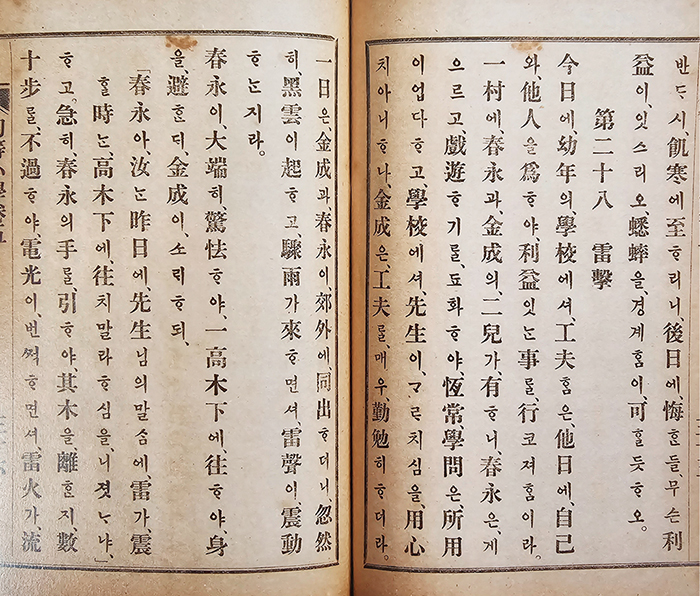 반ᄃᆞ시飢寒에至ᄒᆞ리니、後日에、悔ᄒᆞᆫ들、무슨利
益이、잇스리오蟋蟀을、경계홈이、可ᄒᆞᆯ듯ᄒᆞ오。
第二十八 雷擊
今日에、幼年의、學校에셔、工夫홈은、他日에、自己
와、他人을爲ᄒᆞ야、利益잇ᄂᆞᆫ事ᄅᆞᆯ、行코져홈이라。
一村에、春永과、金成의、二兒가、有ᄒᆞ니、春永은、게
으르고、戱遊ᄒᆞ기ᄅᆞᆯ、됴화ᄒᆞ야、恆常、學問은、所用
이업다ᄒᆞ고學校에셔、先生이、ᄀᆞᄅᆞ치심을、用心
치아니ᄒᆞ나、金成은、工夫ᄅᆞᆯ、매우、勤勉히ᄒᆞ더라。
一日은、金成과、春永이、郊外에、同出ᄒᆞ더니、忽然
히、黑雲이起ᄒᆞ고、驟雨가來ᄒᆞ면셔雷聲이、震動
ᄒᆞᄂᆞᆫ지라。
春永이、大端히、驚怯ᄒᆞ야、一高木下에、往ᄒᆞ야、身
을、避ᄒᆞᆫᄃᆡ、金成이、소리ᄒᆞ되、
「春永아、汝ᄂᆞᆫ昨日에、先生님의말ᄉᆞᆷ에、雷가、震
ᄒᆞᆯ時ᄂᆞᆫ、高木下에、往치말라ᄒᆞ심을、니졋ᄂᆞ냐、」
ᄒᆞ고。急히、春永의手ᄅᆞᆯ、引ᄒᆞ야、其木을離ᄒᆞᆫ지、數
十步ᄅᆞᆯ、不過ᄒᆞ야、電光이、번쩍ᄒᆞ면셔、雷火가、流